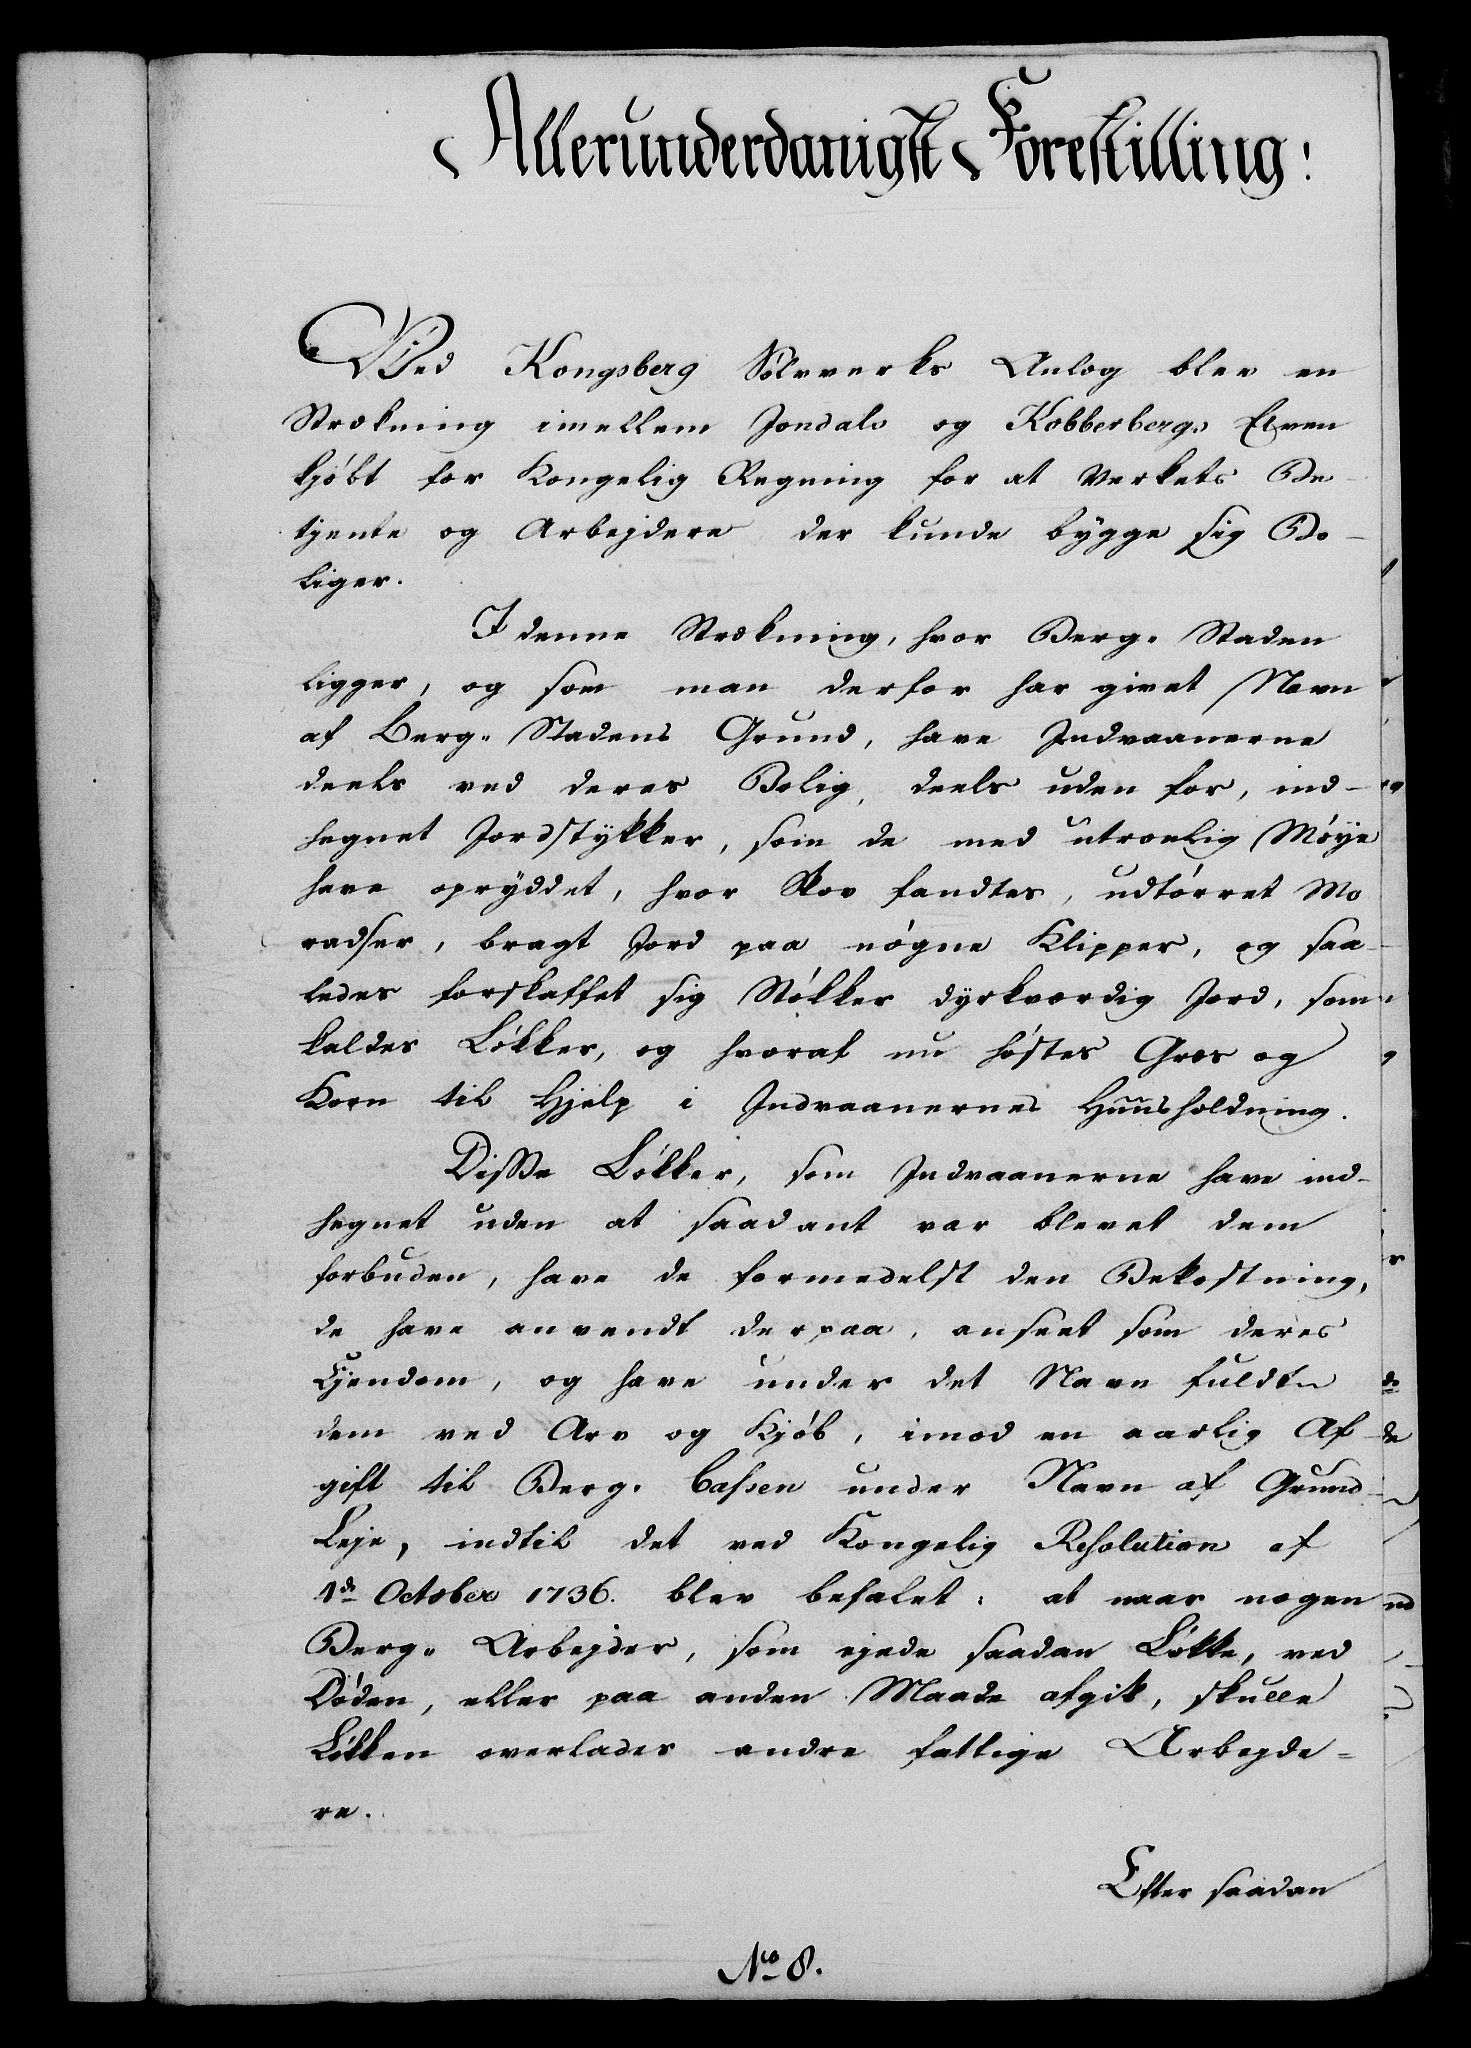 Allerunderdanigst Forestilling!
Ved Kongsberg Sølvverks Anlæg blev en
Strækning imellem Jondals og Kobberbergs Elven
kjøbt for Kongelig Regning for at Verkets Be-
tjente og Arbejdere der kunde bÿgge sig Bo-
liger.
I denne Strækning, hvor Berg-Staden
ligger, og som man derfor har givet Navn
af Berg-Stadens Grund, have Indvaanerne
deels ved deres Bolig, deels uden for, ind-
hegnet Jordstÿkker, som de med utroelig Møÿe
have oprÿddet, hvor Skov fandtes, udtørret Mo
radser, bragt Jord paa nøgne Klipper, og saa-
ledes forskaffet sig Støkker dÿrkværdig Jord, som
kaldes Løkker, og hvoraf nu høstes Græs og
Korn til Hjelp i Indvaanernes Huusholdning.
Disse Løkker, som Indvaanerne have ind-
hegnet uden at saadant var blevet dem
forbuden, have de formedelst den Bekostning,
de have anvendt derpaa, anseet som deres
Ejendom, og have under det Navn fuldt
dem ved Arv og Kjøb, imod en aarlig Af-
gift til Berg-Cassen under Navn af Grund-
Leje, indtil det ved Kongelig Resolution af
1de October 1736. blev befalet: at naar nogen
Berg-Arbejder, som ejede saadan Løkke, ved
Døden, eller paa anden Maade afgik, skulle
Løkken overlades andre fattige Arbejde=
re.
Efter saadan
No 8.